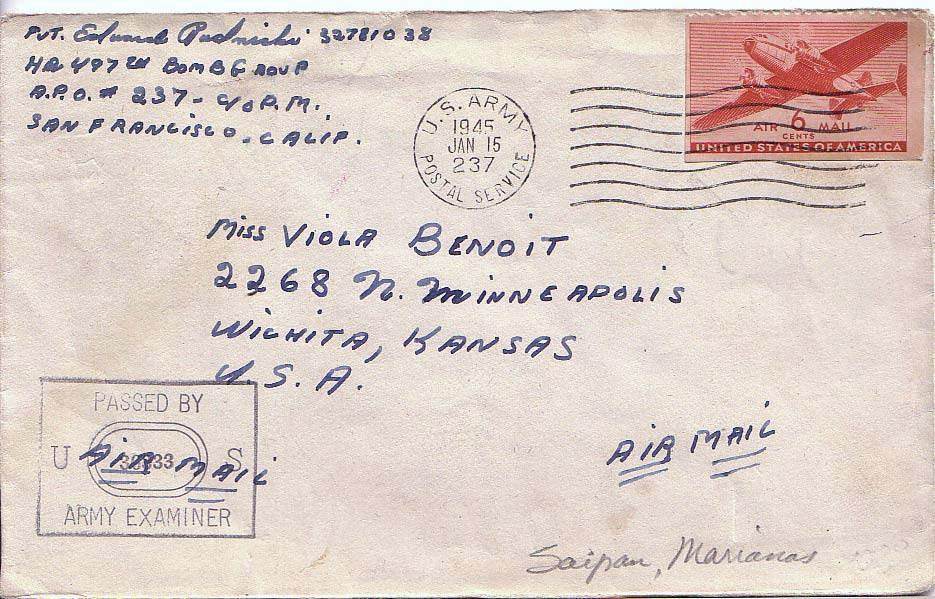 PVT. Edward 32781038
HQ 497TH BOMB GROUP
A.P.O. # 237 - % P.M.
SAN FRANCISCO - CALIF.
U.S. ARMY
1945
JAN 15
237
POSTAL SERVICE
6
AIR MAIL
CENTS
UNITED STATES OF AMERICA
MISS VIOLA BENOIT
2268 N. MINNEAPOLIS
WICHITA, KANSAS
U.S.A.
PASSED BY
U S
ARMY EXAMINER
AIR MAIL
AIR MAIL
Saipan, Marianas